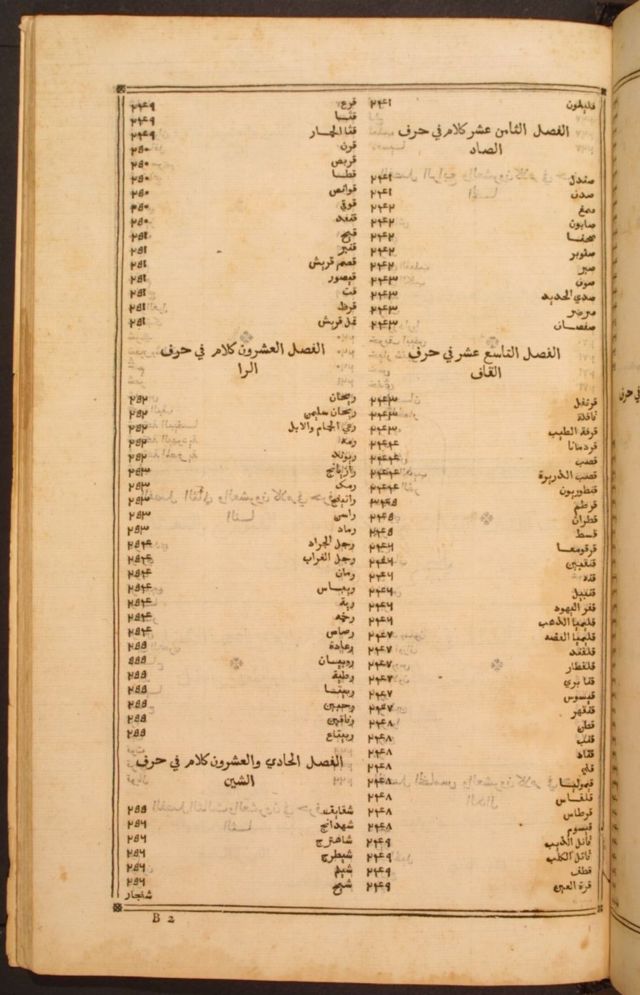 قليمون ٢٤١
الفصل الثامن عشر كلام في حرف
الصاد
صندل ٢٤١
صدف ٢٤١
صمغ ٢٤٢
صابون ٢٤٢
صحفا ٢٤٢
صنوبر ٢٤٢
صبر ٢٤٢
صوف ٢٤٣
صدي الحديد ٢٤٣
صرصر ٢٤٣
صفصاف ٢٤٣
الفصل التاسع عشر في حرف
القاف
قرنفل ٢٤٣
قاقلة ٢٤٣
قرفة الطيب ٢٤٣
قردمانا ٢٤٤
قصب ٢٤٤
قصب الذريرة ٢٤٤
قنطوريون ٢٤٤
قرطم ٢٤٥
قطران ٢٤٥
قسط ٢٤٥
قرقومعما ٢٤٦
قنقهين ٢٤٦
قنه ٢٤٦
قنبيل ٢٤٦
قفر اليهود ٢٤٦
قليميا الذهب ٢٤٦
قليميا الفضه ٢٤٧
قلقند ٢٤٧
قلقطار ٢٤٧
قنا بري ٢٤٧
قيسوس ٢٤٧
قلقهر ٢٤٧
قطن ٢٤٨
قلب ٢٤٨
قتاد ٢٤٨
قلي ٢٤٨
قيموليا ٢٤٨
قلقاس ٢٤٨
قرطاس ٢٤٨
قيسوم ٢٤٨
قاتل الذيب ٢٤٩
قاتل الكلب ٢٤٩
قطف ٢٤٩
قرة العين ٢٤٩
قرع ٢٤٩
قثا ٢٤٩
قثا الحمار ٢٤٩
قرن ٢٥٠
قريص ٢٥٠
قطا ٢٥٠
قوانص ٢٥٠
قوقي ٢٥٠
قنفد ٢٥٠
قبج ٢٥١
قنبر ٢٥١
قضم قريش ٢٥١
قيصور ٢٥١
قت ٢٥١
قرظ ٢٥١
قمل قريش ٢٥١
الفصل العشرون كلام في حرف
الرا
ريحان ٢٥٢
ريحان سليمن ٢٥٢
رعي الحمام والابل ٢٥٢
رته ٢٥٢
ريوند ٢٥٢
رازيانج ٢٥٣
رمك ٢٥٣
راتينج ٢٥٣
راسن ٢٥٣
رماد ٢٥٣
رجل الجراد ٢٥٤
رجل الغراب ٢٥٤
رمان ٢٥٤
ريباس ٢٥٤
رية ٢٥٤
رخمه ٢٥٤
رصاص ٢٥٤
رعادة ٢٥٥
روبيان ٢٥٥
رطبة ٢٥٥
ربيثا ٢٥٥
رجبين ٢٥٥
رتاقين ٢٥٥
ريبتاع ٢٥٥
الفصل الحادي والعشرون كلام في حرف
الشين
شقايق ٢٥٥
شهدانج ٢٥٦
شاهترج ٢٥٦
شيطرج ٢٥٦
شيلم ٢٥٦
شيح ٢٥٦
شنجار
B 2